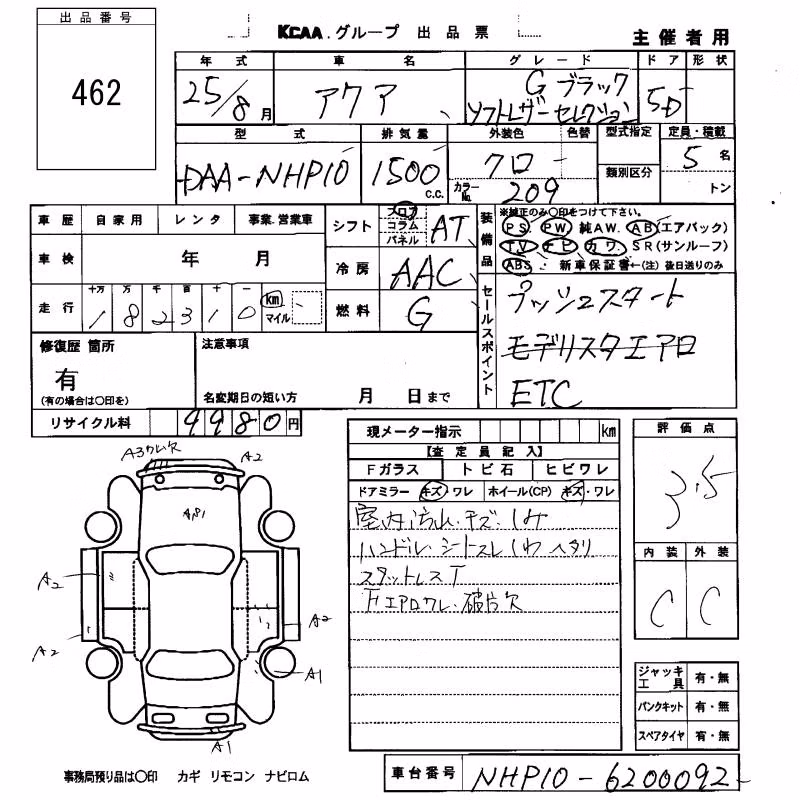 出品番号
462
KCAA.グループ 出品票
主催者用
年式 車名 グレード ドア 形状
25/8月 アクア Gブラック
ソフトレザーセレクション 5D
型式 排気量 外装色 色替 型式指定 定員・積載
DAA-NHP10 1500 c.c. クロ - 類別区分 5名
カラーNo. 209 トン
車歴 自家用 レンタ 事業.営業車
シフト フロア コラム パネル AT
装備品 ※純正のみ〇印をつけて下さい。
PS. PW. 純AW. AB(エアバック)
TV ナビ カワ. SR(サンルーフ)
ABS 新車保証書←(注)後日送りのみ
車検 年 月
冷房 AAC
走行 十万 万 千 百 十 一
182310 km マイル
燃料 G
セールスポイント プッシュスタート
モデリスタエアロ
ETC
修復歴 箇所
有
(有の場合は〇印を)
注意事項
名変期日の短い方 月 日まで
リサイクル料 9980円
現メーター指示 km
【査定員記入】
Fガラス トビ石 ヒビワレ
ドアミラー キズ・ワレ ホイール(CP) キズ・ワレ
室内汚れ・キズ・シミ
ハンドル・シートスレ シワ ヘタリ
スタットレスT
Fエアロワレ・破片欠
評価点
3.5
内装 外装
C C
A3ワレ欠 A2
A,B1
A2
A2
A2
A1
A1
ジャッキ工具 有・無
パンクキット 有・無
スペアタイヤ 有・無
事務局預り品は〇印 カギ リモコン ナビロム
車台番号 NHP10-6200092-